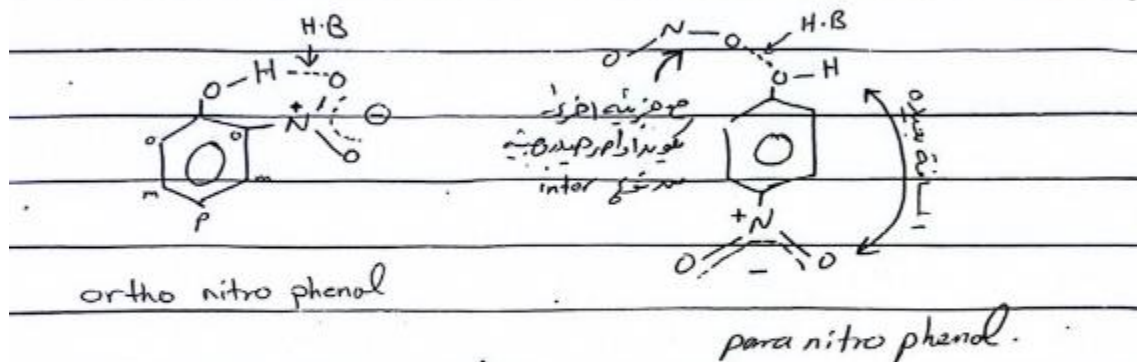 H.B
O-H---O
N
+
⊖
O
o
o
m
m
p
ortho nitro phenol
O
N
O
H.B
O-H
مع جزيئه اخرى
هيدروجينيه
inter
المسافة بعيدة
+
N
O
O
-
para nitro phenol.